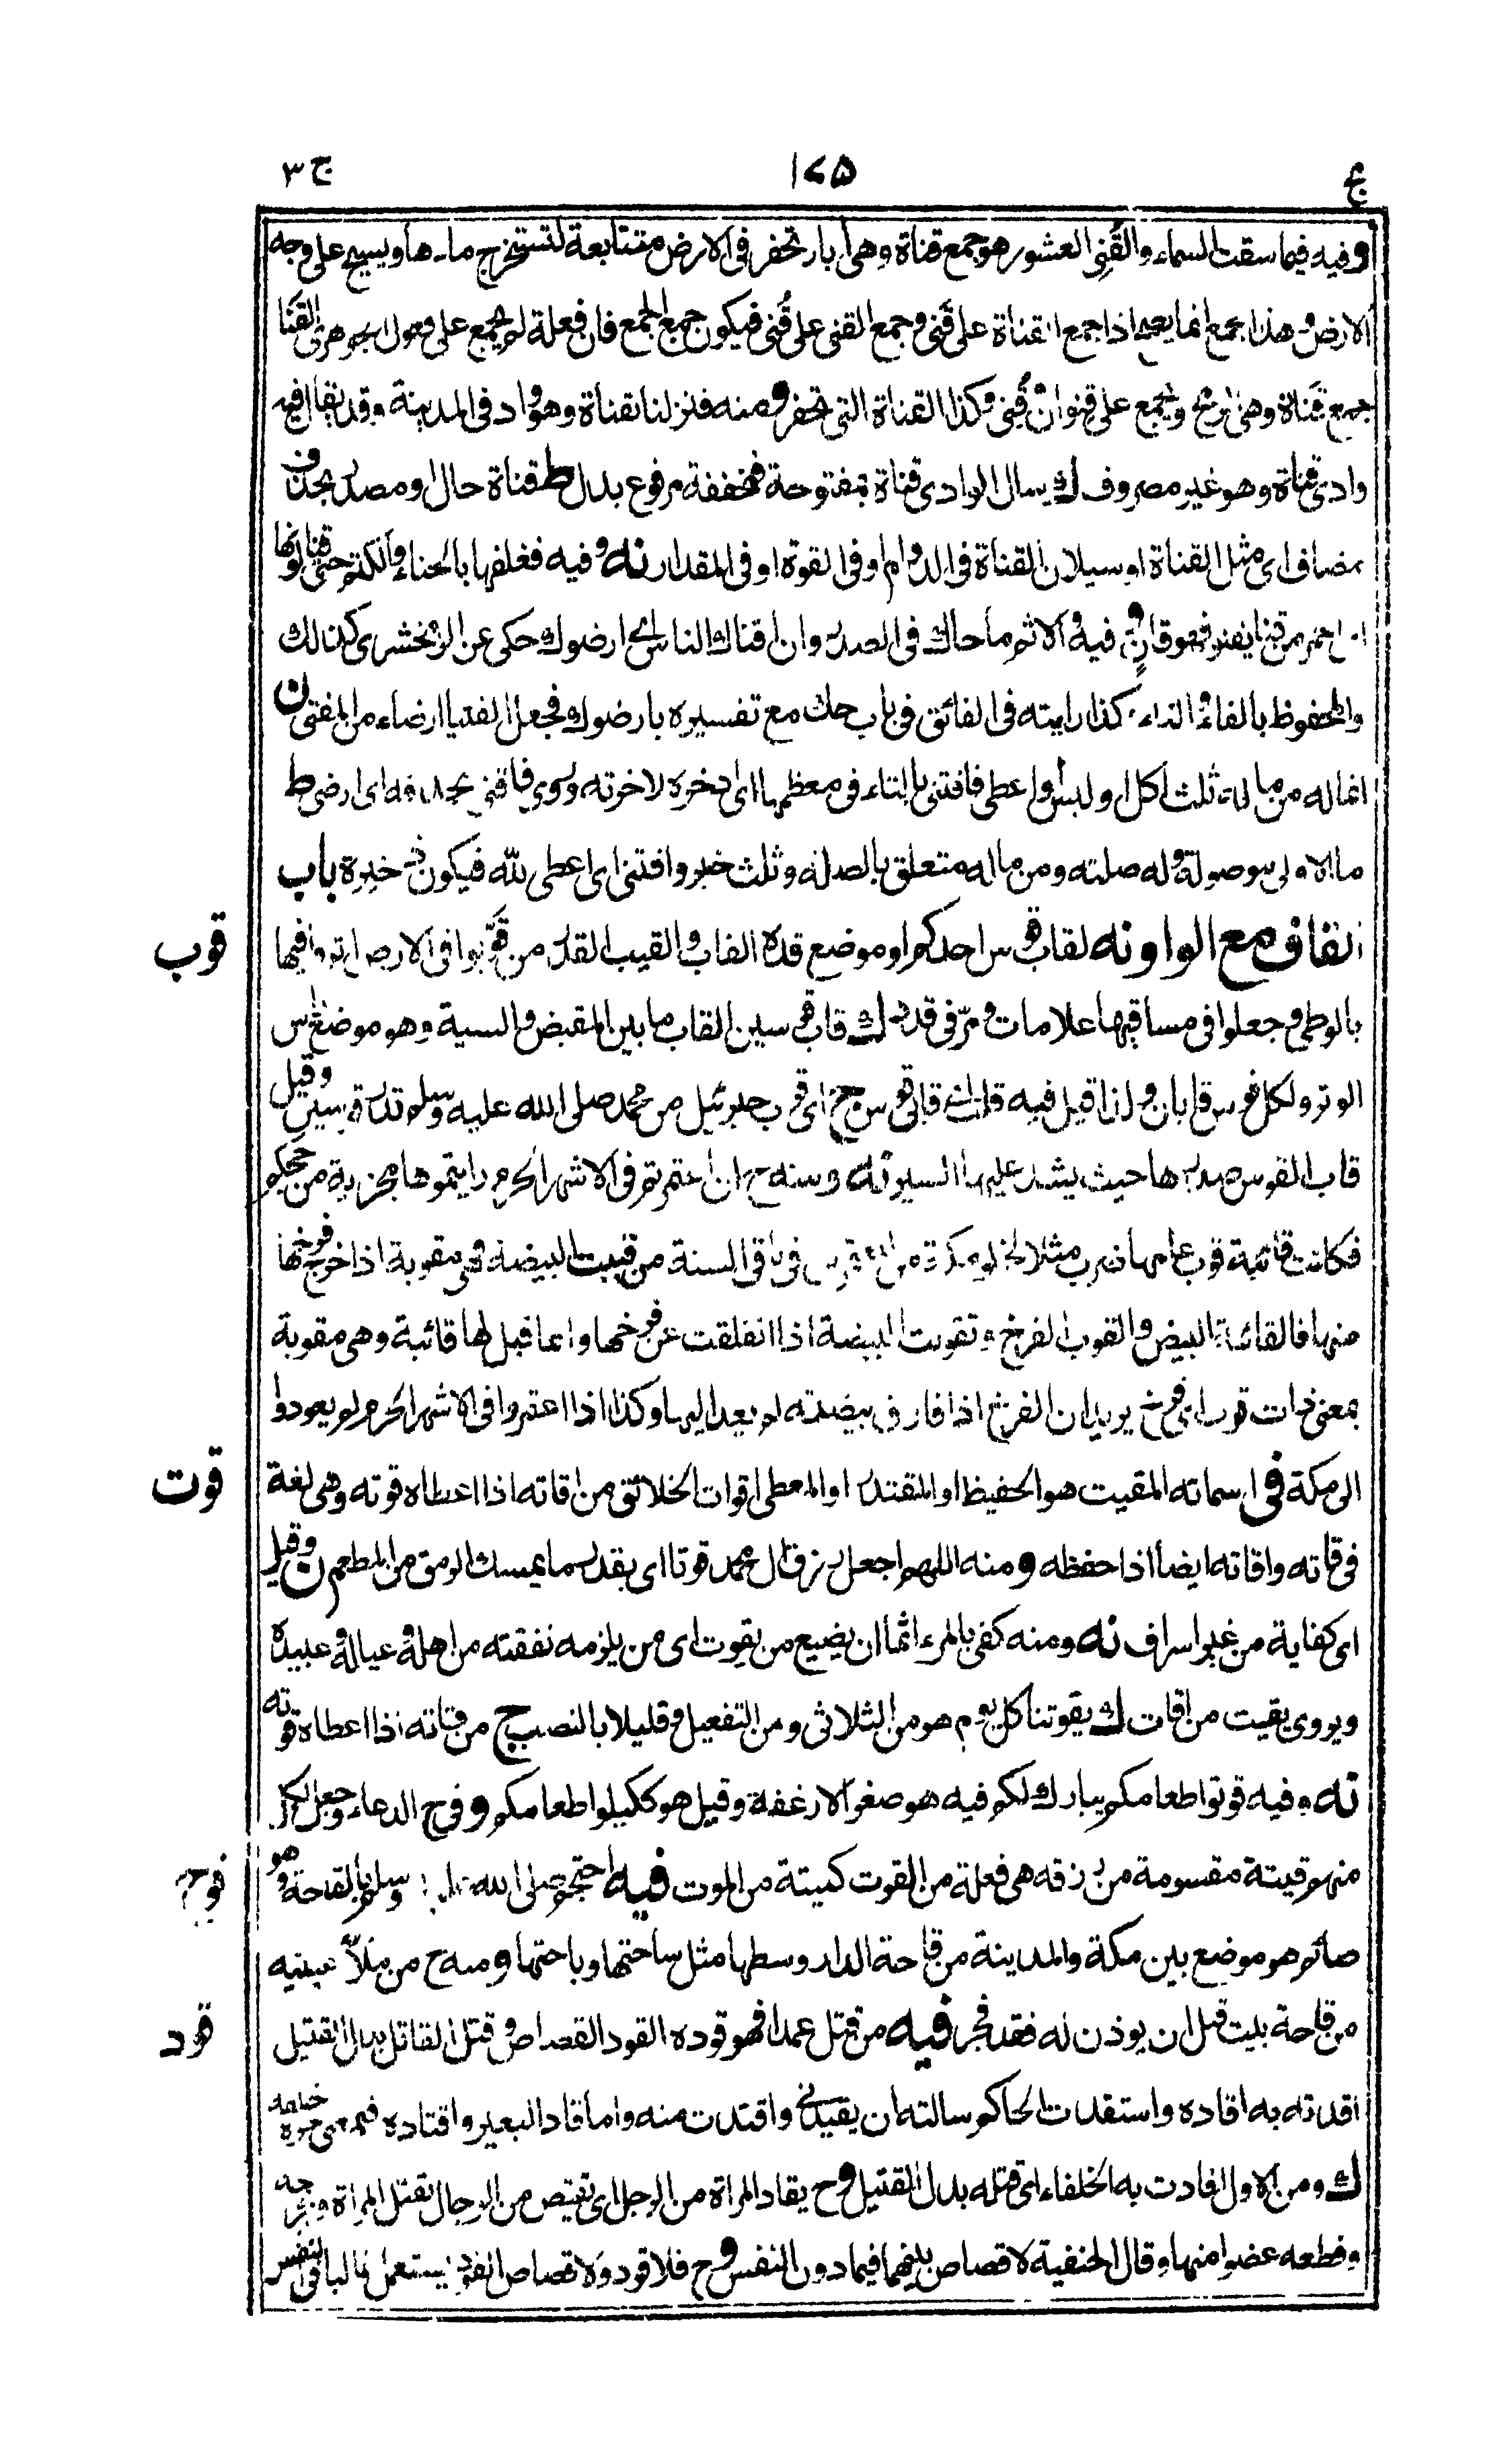 ع ١٧٥ ج ٣
وفيه فيما سقت السماء والقُنِى العشور هو جمع قناة وهى ابار تحفر فى الارض متتابعة لتستخرج ماءها ويسيح على وجه
الارض وهذا الجمع انما يصح اذا جمع القناة على قَنى وجمع القنى على قُنى فيكون جمع الجمع فان فعلة لم يجمع على فعول الجوهرى القَنَا
جمع قناة وهى الرمح ويجمع على قنوات وقُنِى وكذا القناة التى تحفر ومنه فنزلنا بقناة وهو واد فى المدينة وقد يقال فيه
وادى قناة وهو غير مصروف ك سال الوادى قناة بمفتوحة فمخففة مرفوع بدل ط قناة حال او مصدر بحذف
مضاف اى مثل القناة او سيلان القناة فى الدوام او فى القوة او فى المقدار نه وفيه فغلفها بالحناء والكتم حتى قنا لونها
اى احمر من قنا يقنو فهو قانٍ وفيه والاثم ما حاك فى الصدر وان اقناك الناس اى ارضوك حكى عن الزمخشرى كذلك
والمحفوظ بالفاء والتاء كذا رايته فى الفائق فى باب حك مع تفسيره بارضوك وجعل الفتيا ارضاء من المفتى ن
انما له من ماله ثلث اكل او لبس او اعطى فاقتنى بالتاء فى معظمها اى ادخره لاخرته وروى فاقنى بحذفه اى ارضى ط
ما الاولى موصولة وله صلته ومن ماله متعلق بالصلة وثلث خبر واقتنى اى اعطى لله فيكون ذخيرة باب
القاف مع الواو نه لقاب قوس احدكم او موضع قده القاب والقيب القدر من قوّبوا فى الارض اى اثروا فيها
بالوطى وجعلوا فى مساقيها علامات ومرّ فى قدد ك قاب قوسين القاب ما بين المقبض والسية وهو موضع راس
الوتر ولكل قوس قابان ولذا قيل فيه قلب اى قابى قوس ج اى قرب جبرئيل من محمد صلى الله عليه وسلم قدر قوسين وقيل
قاب القوس صدرها حيث يشد عليها السير نه ومنه ح ان اعتمرتم فى الاشهر الحرم رايتموها مجزية من حجكم
فكانت قائبة قوب عامها ضرب مثلا لخلو مكة من المعتمرين فى باقى السنة من قيبت البيضة فهى مقوبة اذا خرج فرخها
منها فالقائبة البيض والقوب الفرخ وتقوبت البيضة اذا انفلقت عن فرخها وانما قيل لها قائبة وهى مقوبة
بمعنى ذات قوب اى فرخ يريد ان الفرخ اذا فارق بيضته لم يعد اليها وكذا اذا اعتمروا فى الاشهر الحرم لم يعودوا
الى مكة فى اسمائه المقيت هو الحفيظ او المقتدر او المعطى اقوات الخلائق من اقاته اذا اعطاه قوته وهى لغة
فى قاته واقاته ايضا اذا حفظه ومنه اللهم اجعل رزق ال محمد قوتا اى بقدر ما يمسك الرمق من المطعم ن وقيل
اى كفاية من غير اسراف نه ومنه كفى بالمرء اثما ان يضيع من يقوت اى من يلزمه نفقته من اهله وعياله وعبيده
ويروى يقيت من اقات ك يقوتنا كل يوم هو من الثلاثى ومن التفعيل وقليلا بالنصب ج من قاته اذا اعطاه قوته
نه وفيه قوتوا طعامكم يبارك لكم فيه هو صغر الارغفة وقيل هو ككيلوا طعامكم وفى ح الدعاء وجعل لكل
منهم قيتة مقسومة من رزقه هى فعلة من القوت كميتة من الموت فيه احتجم صلى الله عليه وسلم بالقاحة وهو
صائم هو موضع بين مكة والمدينة من قاحة الدار وسطها مثل ساحتها وباحتها ومنه ح من ملأ عينيه
من قاحة بيت قبل ان يوذن له فقد فجر فيه من قتل عمدا فهو قوده القود القصاص وقتل القاتل بدل القتيل
اقدته به اقاده واستقدت الحاكم سالته ان يقيدنى واقتدت منه واما قاد البعير واقتاده فبمعنى جره خلفه
ك ومن الاول اقادت به الخلفاء اى قتله بدل القتيل وح يقاد المراة من الرجل اى تقتص من الرجال بقتل المراة وبجرحه
وقطعه عضوا منها وقال الحنفية لا قصاص بينهما فيما دون النفس وح فلا قود ولا قصاص القود يستعمل غالبا فى النفس
قوب
قوت
قوح
قود